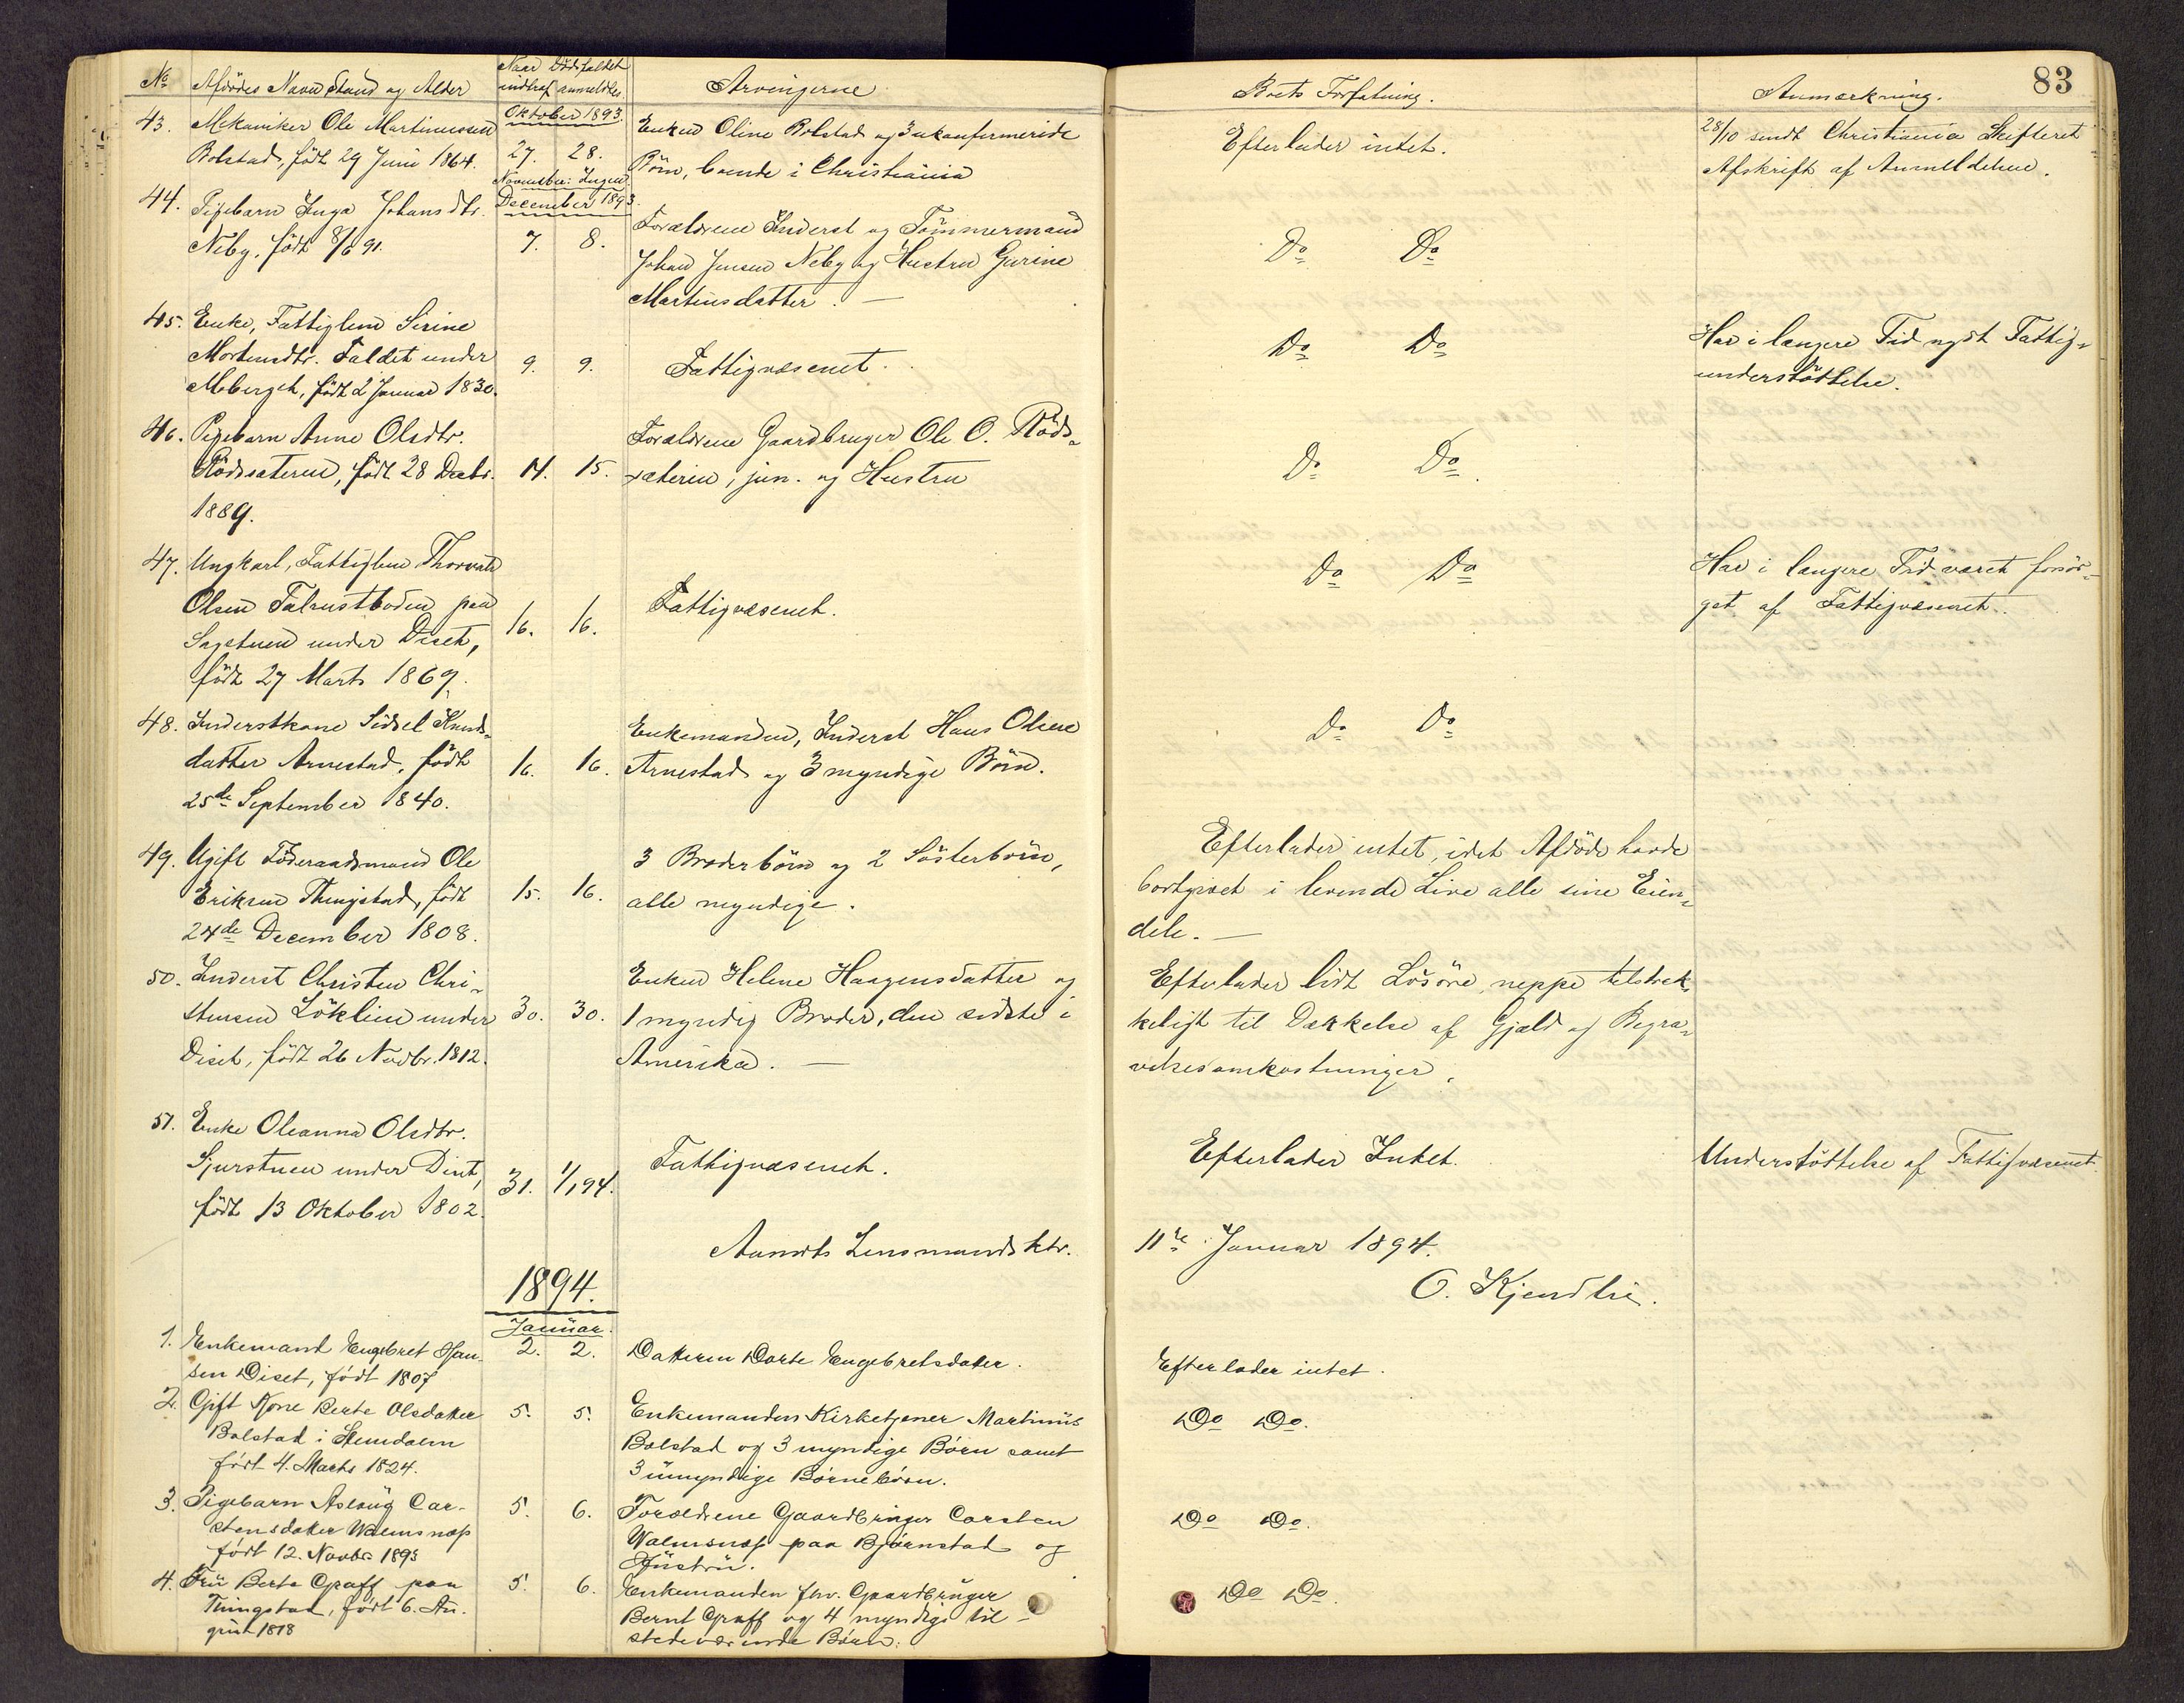 83
No Afdödes Navn Stand og Alder Naar Dödsfaldet indtraf anmeldtes Arvingerne Boets Forfatning. Anmærkning.
Oktober 1893.
43. Mekaniker Ole Martinussen
Bolstad, född 29 Juni 1864. 27. 28.
Enken Oline Bolstad og 3 ukonfirmerede
Börn, boende i Christiania
Efterlader intet.
28/10 sendt Christiania Skifteret
Afskrift af Anmeldelsen.
November: Ingen.
December 1893.
44. Pigebarn Inga Johansdtr.
Neby, född 8/6 91. 7. 8.
Forældrene Inderst og Tömmermand
Johan Jensen Neby og Hustru Gurine
Martinsdatter. —
Do Do
45. Enke, Fattiglem Sirine
Mortensdtr. Faldet under
Moberget, född 2 Januar 1830. 9. 9.
Fattigvæsenet.
Do Do
Har i længere Tid nydt Fattig-
understöttelse.
46. Pigebarn Anne Olsdtr.
Rödssæteren, född 28 Decbr. 14. 15.
1889.
Forældrene Gaardbruger Ole O. Röds-
sæteren, jun. og Hustru
Do Do
47. Ungkarl, Fattiglem Thorvald
Olsen paa
Sagstuen under Diset, 16. 16.
född 27 Marts 1869.
Fattigvæsenet.
Do Do
Har i længere Tid været forsör-
get af Fattigvæsenet.
48. Inderstkone Sidsel Knuds-
datter Arnestad, född 16. 16.
25de September 1840.
Enkemanden, Inderst Hans Olsen
Arnestad og 3 myndige Börn.
Do Do
49. Ugift Föderaadsmand Ole
Eriksen Thingstad, född 15. 16.
24de December 1808.
3 Broderbörn og 2 Sösterbörn,
alle myndige.
Efterlader intet, idet Afdöde havde
bortgivet i levende Live alle sine Eien-
dele. —
50. Inderst Christen Chri-
stensen Löklien under 30. 30.
Diset, född 26 Novbr. 1812.
Enken Helene Haagensdatter og
1 myndig Broder, den sidste i
Amerika. —
Efterlader lidt Lösöre neppe tilstræk-
keligt til Dækkelse af Gjæld og Begra-
velsesomkostninger.
51. Enke Oleanna Olsdtr.
Sjurstuen under Diset, 31. 1/1 94.
född 13 Oktober 1802.
Fattigvæsenet.
Efterlader Intet.
Understöttelse af Fattigvæsenet.
Aamots Lensmandsktr. 11te Januar 1894.
O. Kjendlie.
1894.
Januar.
1. Enkemand Engebret Han- 2. 2.
sen Diset, födt 1807
Datteren Dorte Engebretsdatter.
Efterlader intet.
2. Gift Kone Berte Olsdatter 5. 5.
Bolstad i Slemdalen
födt 4. Marts 1824.
Enkemanden Kirketjener Martinus
Bolstad og 3 myndige Börn samt
3 umyndige Börnebörn.
Do Do.
3. Pigebarn Aslaug Car- 5. 6.
stensdatter Walmsnæs
födt 12. Novbr. 1893
Forældrene Gaardbruger Carsten
Walmsnæs paa Björnstad og
Hustru.
Do Do.
4. Fru Berte Graff paa 5. 6.
Thingstad, födt 6. Au-
gust 1818
Enkemanden fhv. Gaardbruger
Bernt Graff og 4 myndige til-
stedeværende Börn.
Do Do.